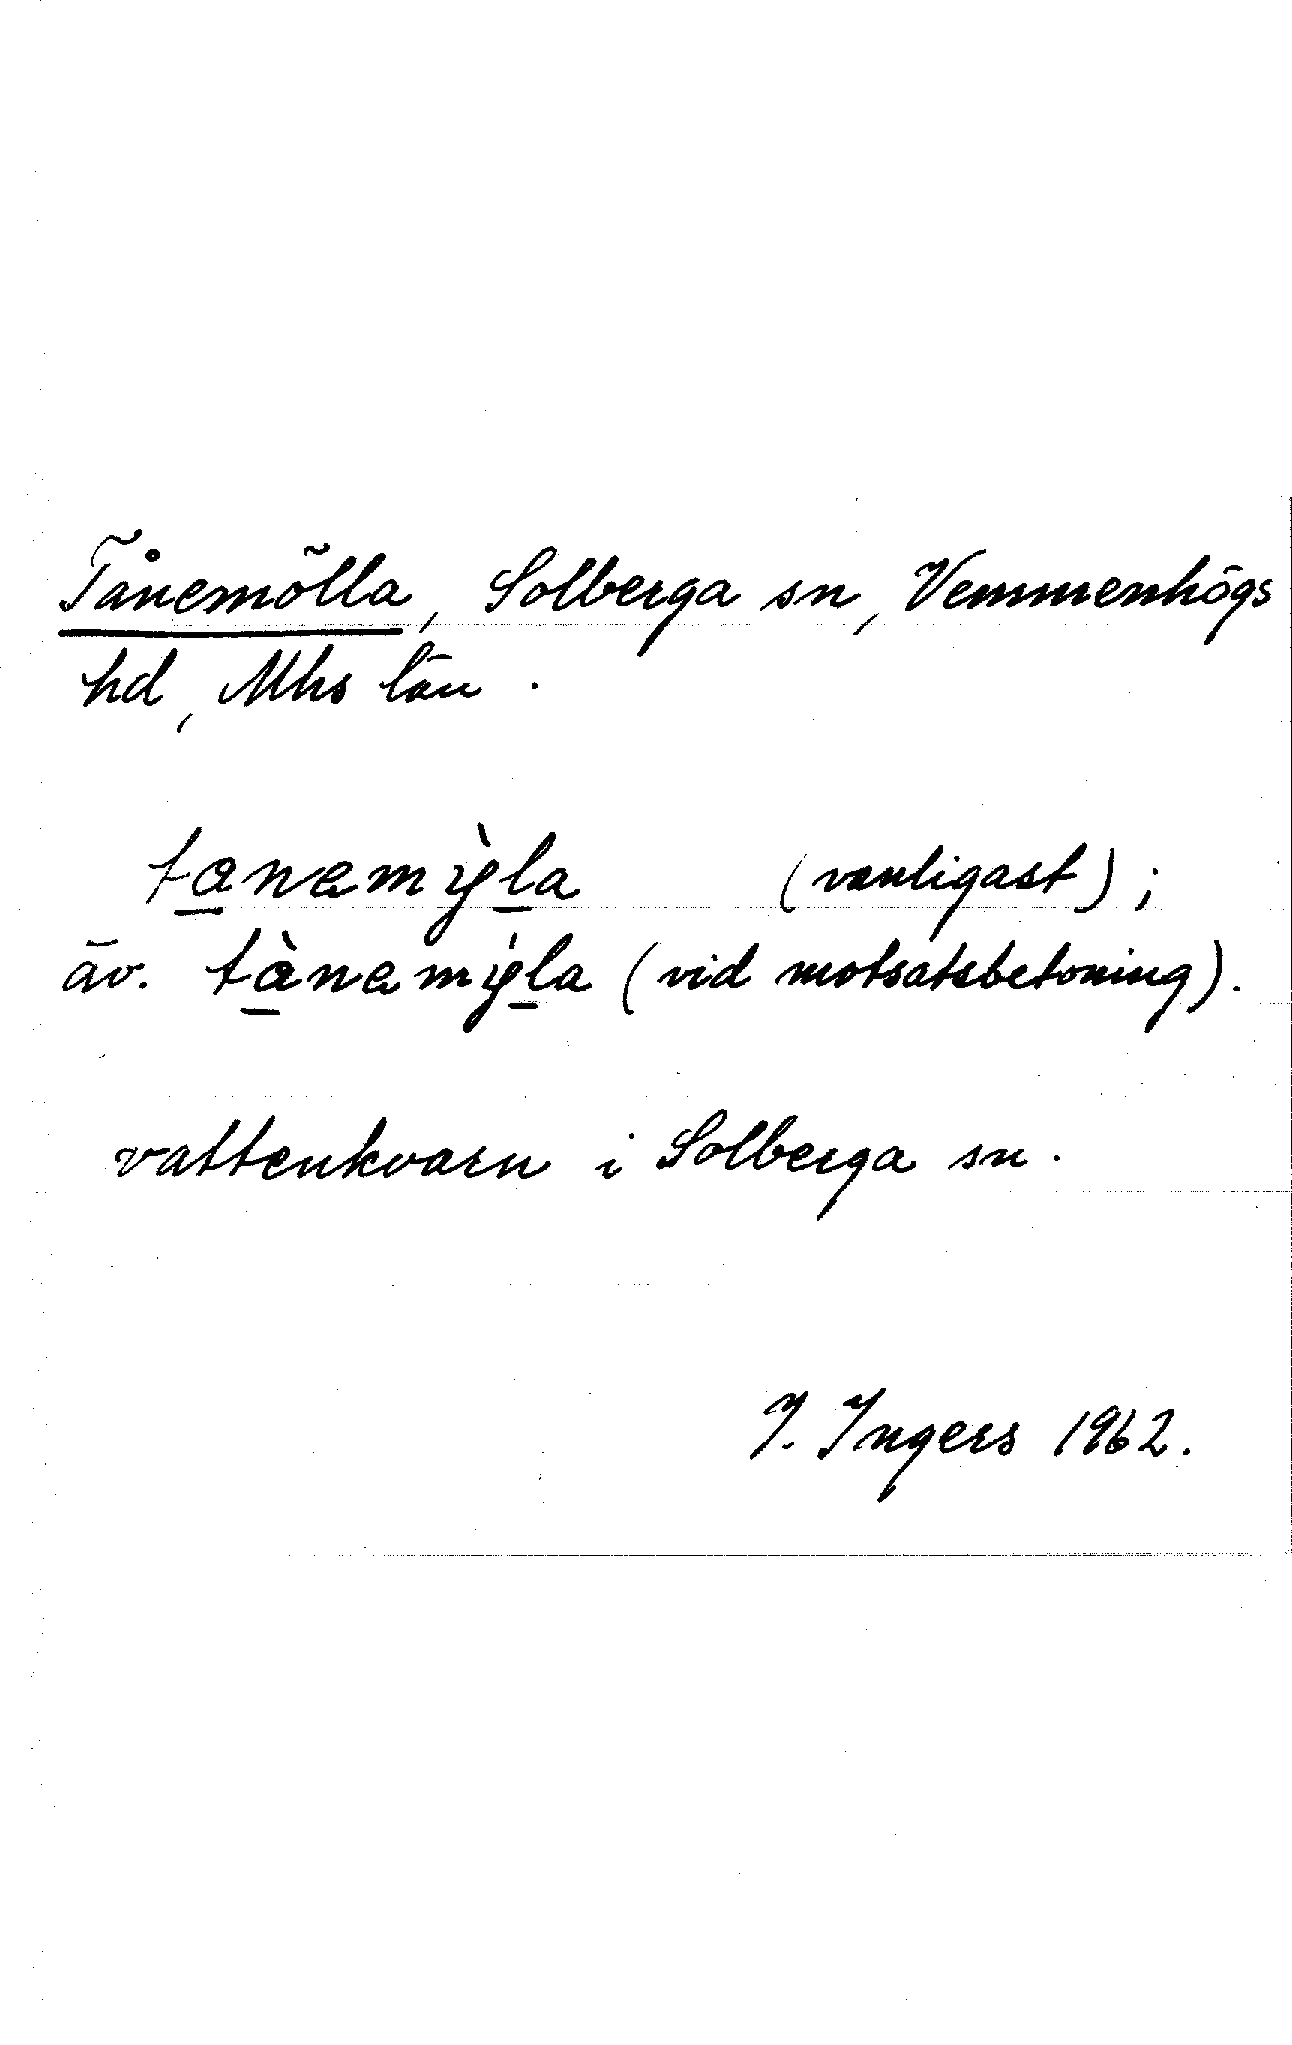 Tånemölla, Solberga sn, Vemmenhögs
hd, Mhs län.
tanemỳla (vanligast);
äv. tànemýla (vid motsatsbetoning).
vattenkvarn i Solberga sn.
I. Ingers 1962.